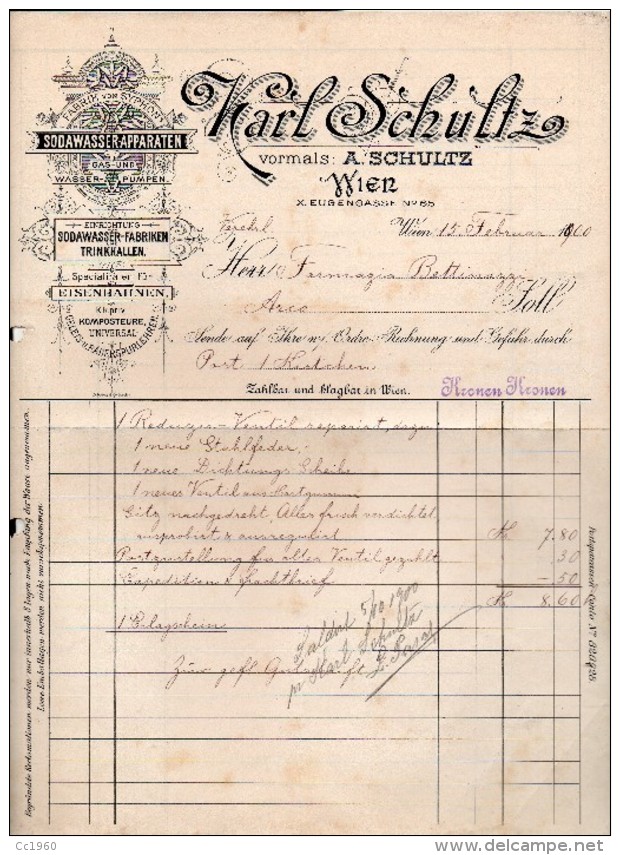 FABRIK VON SYPHONS
SODAWASSER-APPARATEN
GAS- UND
WASSER-PUMPEN.
EINRICHTUNG
SODAWASSER-FABRIKEN
TRINKHALLEN.
Specialitäten für
EISENBAHNEN,
K.k. priv.
KOMPOSTEURE,
UNIVERSAL-
GLEIS- U. RÄDERSPURLEHREN.
Karl Schultz
vormals: A. SCHULTZ
Wien
X. EUGENGASSE No 65
Wien 15 Februar 1900
Herrn Farmazia
Arco
Soll
Sende auf Ihre w. Ordre, Rechnung und Gefahr durch
Post 1 Kistchen
Zahlbar und klagbar in Wien.
Kronen Kronen
1 Reduzir-Ventil reparirt, dazu:
1 neue Stahlfeder,
1 neue Dichtungs Scheibe
1 neues Ventil aus Hartgummi
Sitz nachgedreht, Alles frisch verdichtet
ausprobirt & ausregulirt K 7.80
für altes Ventil gezahlt 30
Expedition & Frachtbrief -.50
K 8.60
1 Erlagschein
Saldirt 5/10 1900
pr Karl Schultz
Begründete Reclamationen werden nur innerhalb 8 Tagen nach Empfang der Waare angenommen.
Leere Emballagen werden nicht zurückgenommen.
Postsparcassen-Conto No
Cc1960
delcampe.net